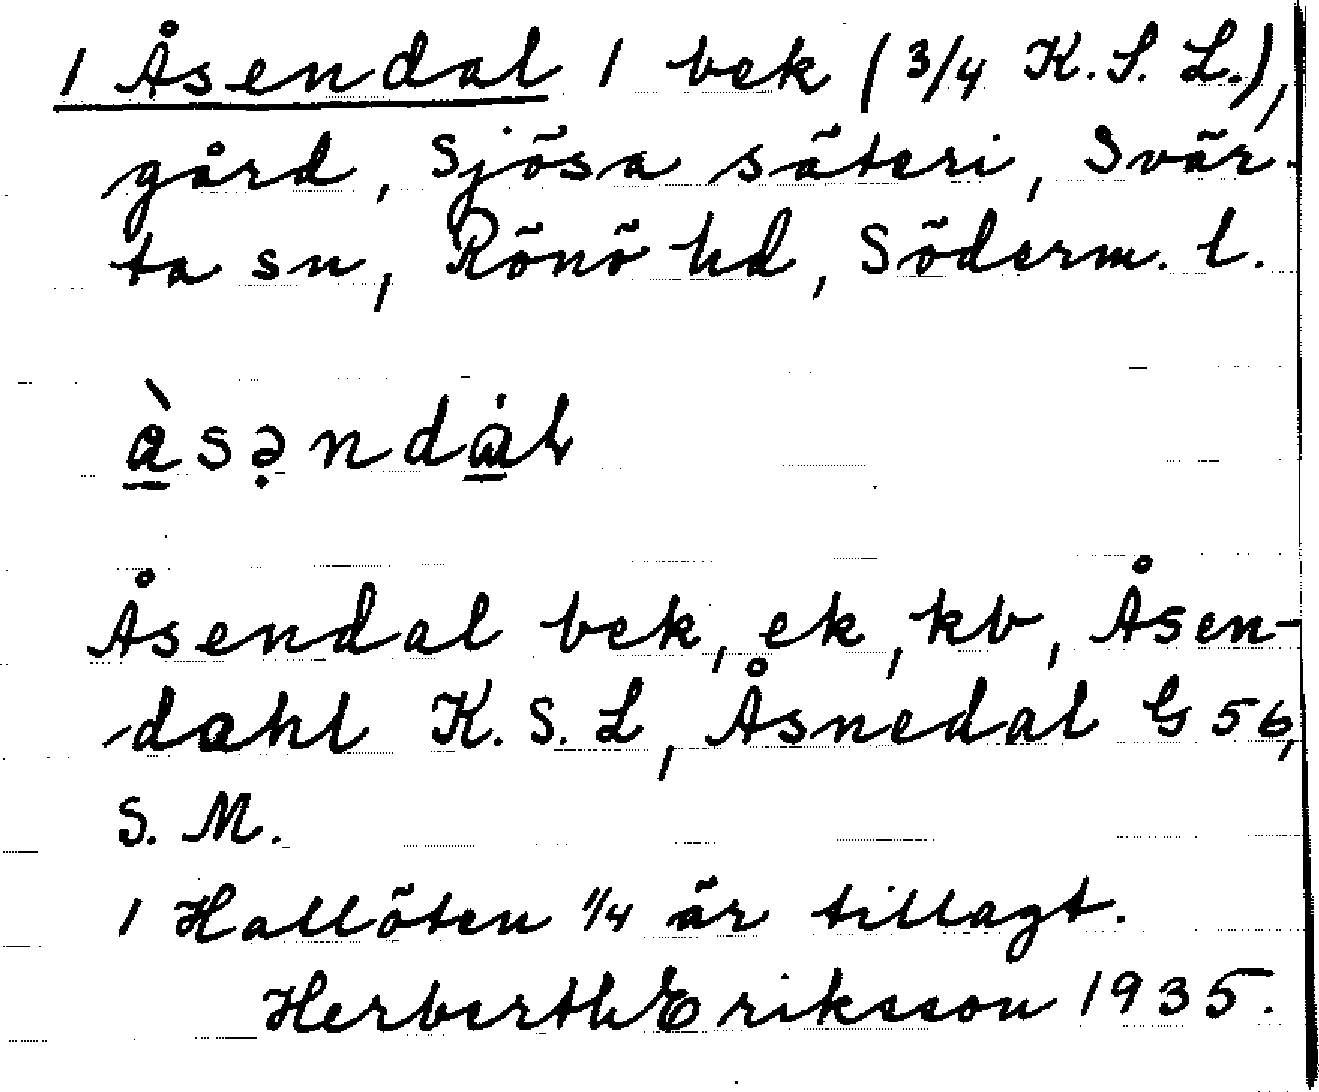 1 Åsendal 1 bek (3/4 K. S. L.),
gård, Sjösa säteri, Svär-
ta sn, Rönö hd, Söderm. l.
àsəndàl
Åsendal bek, ek, kb, Åsen-
dahl K. S. L, Åsnedal G 56,
S. M.
1 Hallöten 1/4 är tillagt.
Herberth Eriksson 1935.